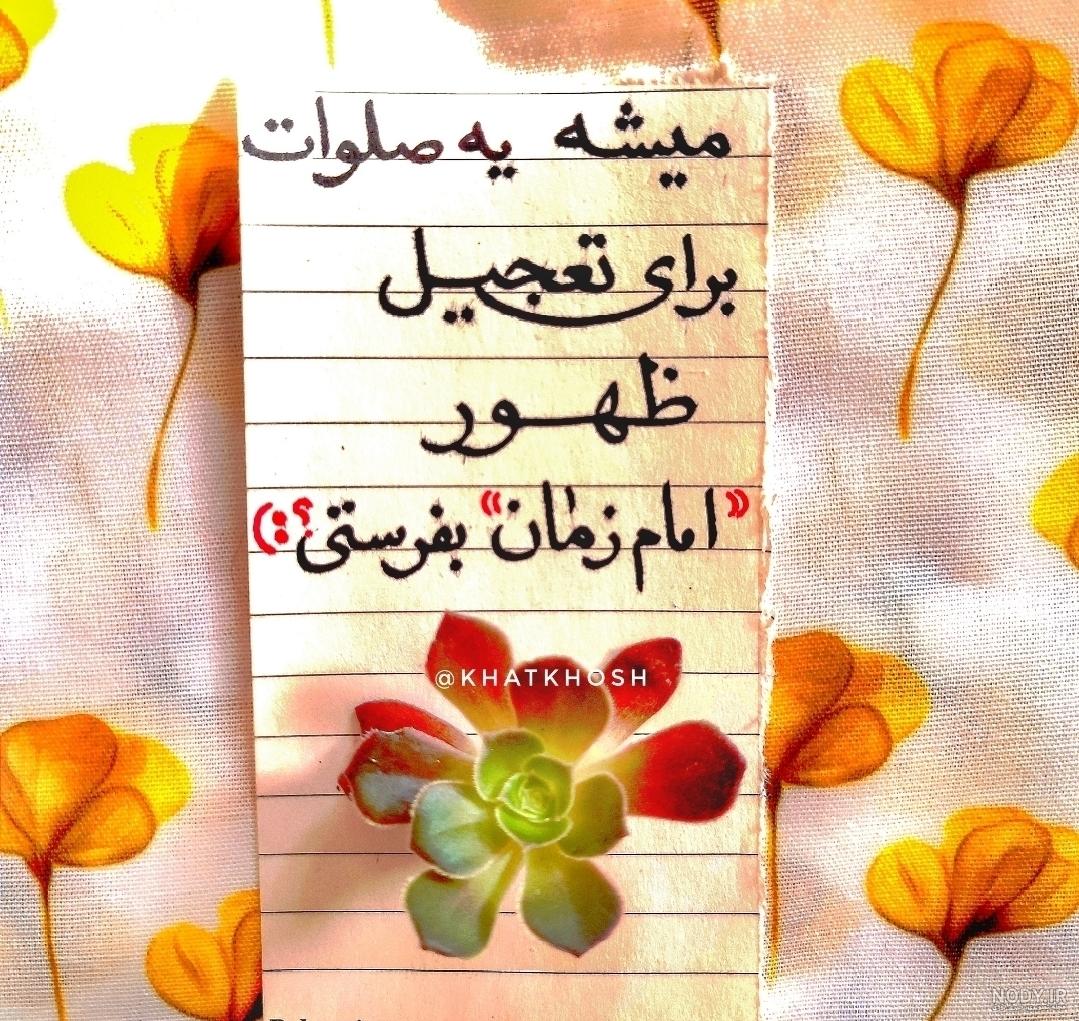 میشه یه صلوات
برای تعجیل
ظهور
«امام زمان» بفرستی؟:)
@KHATKHOSH
NODY.IR